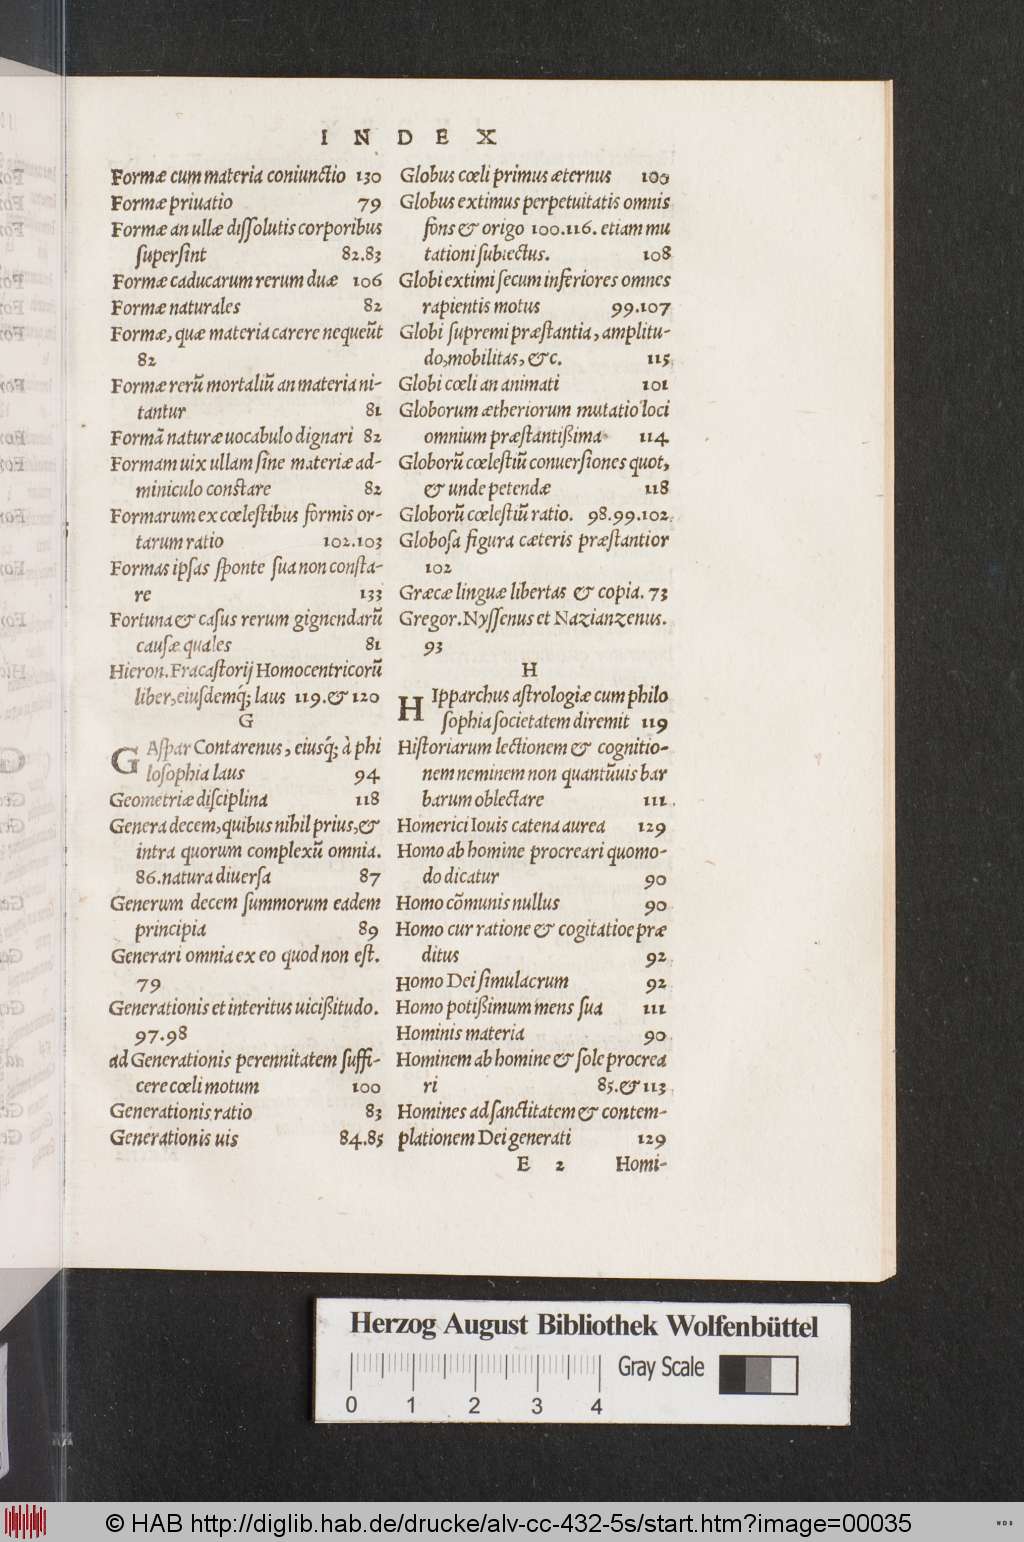 INDEX
Formæ cum materia coniunctio 130
Formæ priuatio 79
Formæ an ullæ dissolutis corporibus
supersint 82.83
Formæ caducarum rerum duæ 106
Formæ naturales 82
Formæ, quæ materia carere nequeũt
82
Formæ rerũ mortaliũ an materia ni-
tantur 81
Formã naturæ uocabulo dignari 82
Formam uix ullam sine materiæ ad-
miniculo constare 82
Formarum ex cœlestibus formis or-
tarum ratio 102.103
Formas ipsas sponte sua non consta-
re 133
Fortuna & casus rerum gignendarũ
causæ quales 81
Hieron. Fracastorij Homocentricorũ
liber, eiusdemq́; laus 119.& 120
G
GAspar Contarenus, eiusq́; à phi
losophia laus 94
Geometriæ disciplina 118
Genera decem, quibus nihil prius, &
intra quorum complexũ omnia.
86. natura diuersa 87
Generum decem summorum eadem
principia 89
Generari omnia ex eo quod non est.
79
Generationis et interitus uicißitudo.
97.98
ad Generationis perennitatem suffi-
cere cœli motum 100
Generationis ratio 83
Generationis uis 84.85
Globus cœli primus æternus 100
Globus extimus perpetuitatis omnis
fons & origo 100.116. etiam mu
tationi subiectus. 108
Globi extimi secum inferiores omnes
rapientis motus 99.107
Globi supremi præstantia, amplitu-
do, mobilitas, &c. 115
Globi cœli an animati 101
Globorum ætheriorum mutatio loci
omnium præstantißima 114
Globorũ cœlestiũ conuersiones quot,
& unde petendæ 118
Globorũ cœlestiũ ratio. 98.99.102
Globosa figura cæteris præstantior
102
Græcæ linguæ libertas & copia. 73
Gregor. Nyssenus et Nazianzenus.
93
H
HIpparchus astrologiæ cum philo
sophia societatem diremit 119
Historiarum lectionem & cognitio-
nem neminem non quantũuis bar
barum oblectare 111
Homerici Iouis catena aurea 129
Homo ab homine procreari quomo-
do dicatur 90
Homo cõmunis nullus 90
Homo cur ratione & cogitatioe præ
ditus 92
Homo Dei simulacrum 92
Homo potißimum mens sua 111
Hominis materia 90
Hominem ab homine & sole procrea
ri 85.& 113
Homines ad sanctitatem & contem-
plationem Dei generati 129
E 2 Homi-
Herzog August Bibliothek Wolfenbüttel
Gray Scale
0 1 2 3 4
© HAB http://diglib.hab.de/drucke/alv-cc-432-5s/start.htm?image=00035